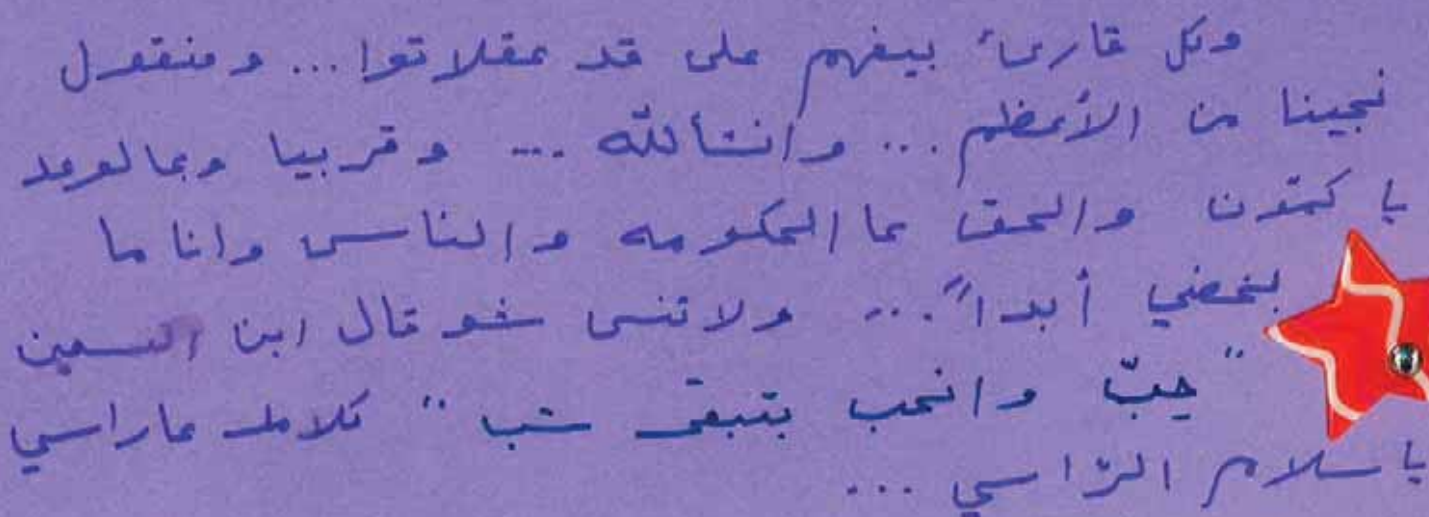 وكل قارئ بيفهم على قد عقلاتوا ... ومنقول
نجينا من الأعظم ... وانشألله ... وقريبا وعالوعد
يا كمّون والحق عا الحكومه والناس وانا ما
بخصني أبداً ... ولا تنسى شو قال ابن السمين
"حِبّ وانحب بتبقى شب" كلامك عاراسي
يا سلام الرّاسي ...